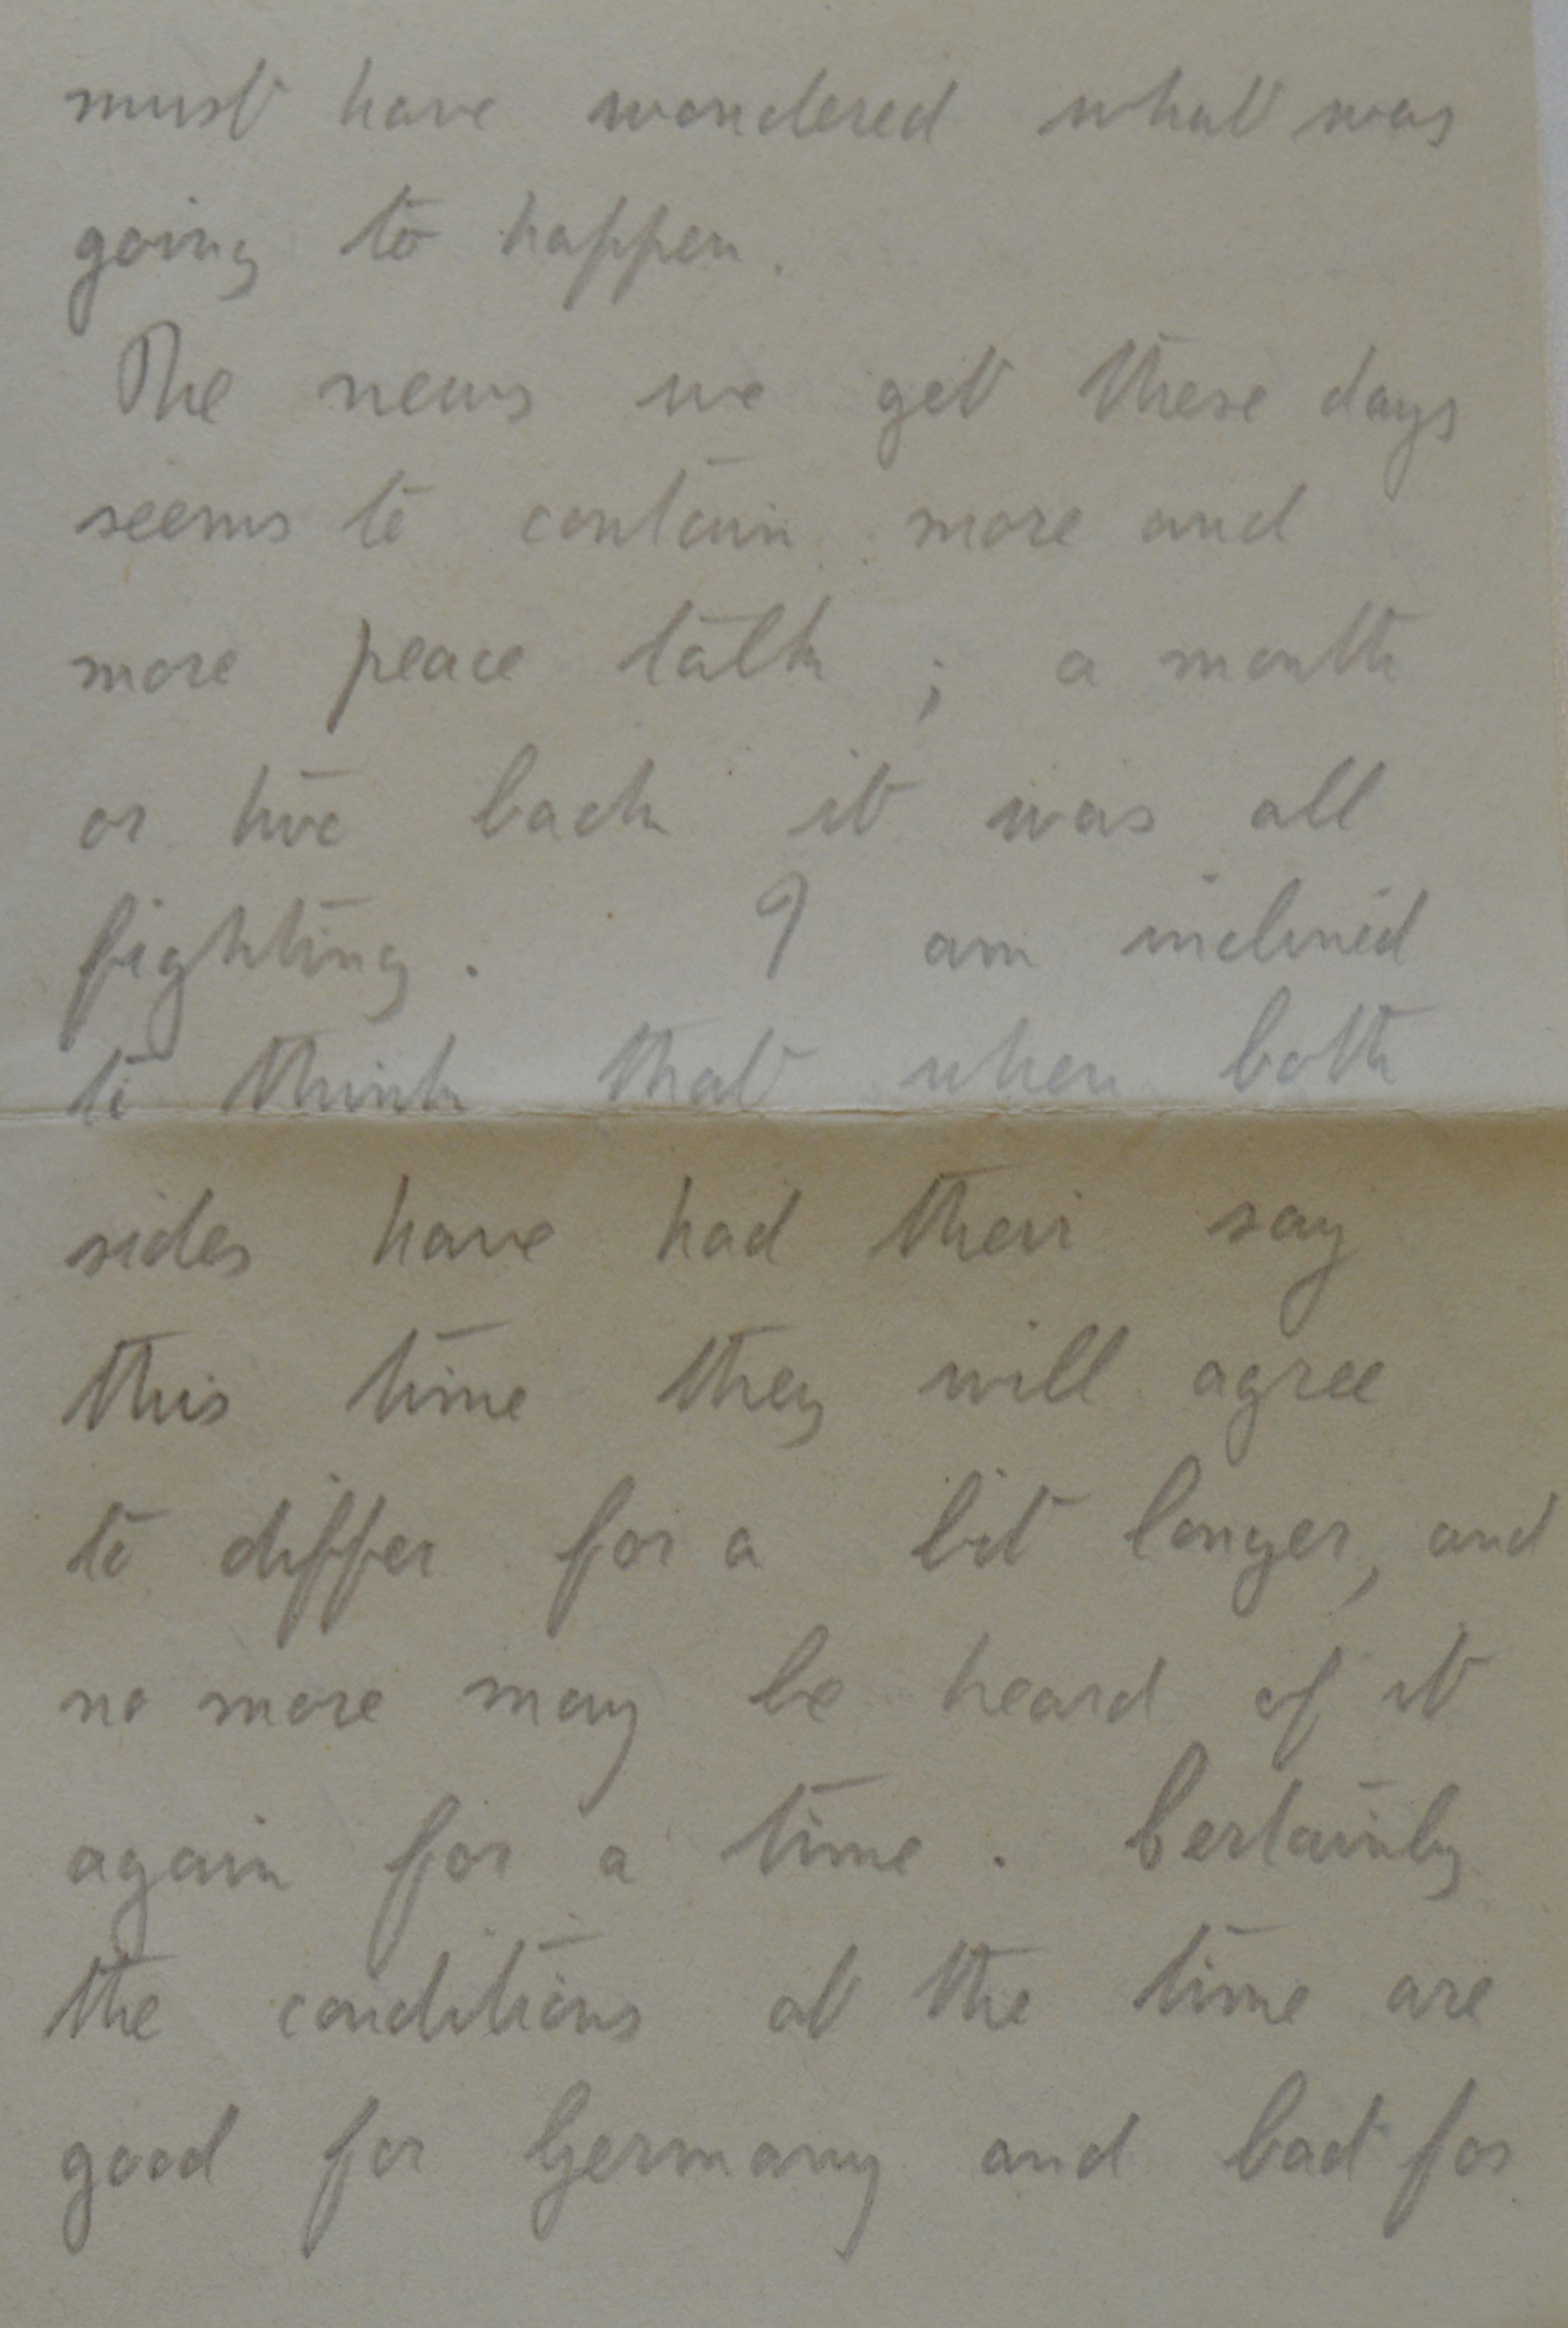 must have wondered what was
going to happen.
The news we get these days
seems to contain more and
more peace talk ; a month
or two back it was all
fighting. I am inclined
to think that when both
sides have had their say
this time they will agree
to differ for a bit longer, and
no more may be heard of it
again for a time. Certainly
the conditions at the time are
good for Germany and bad for